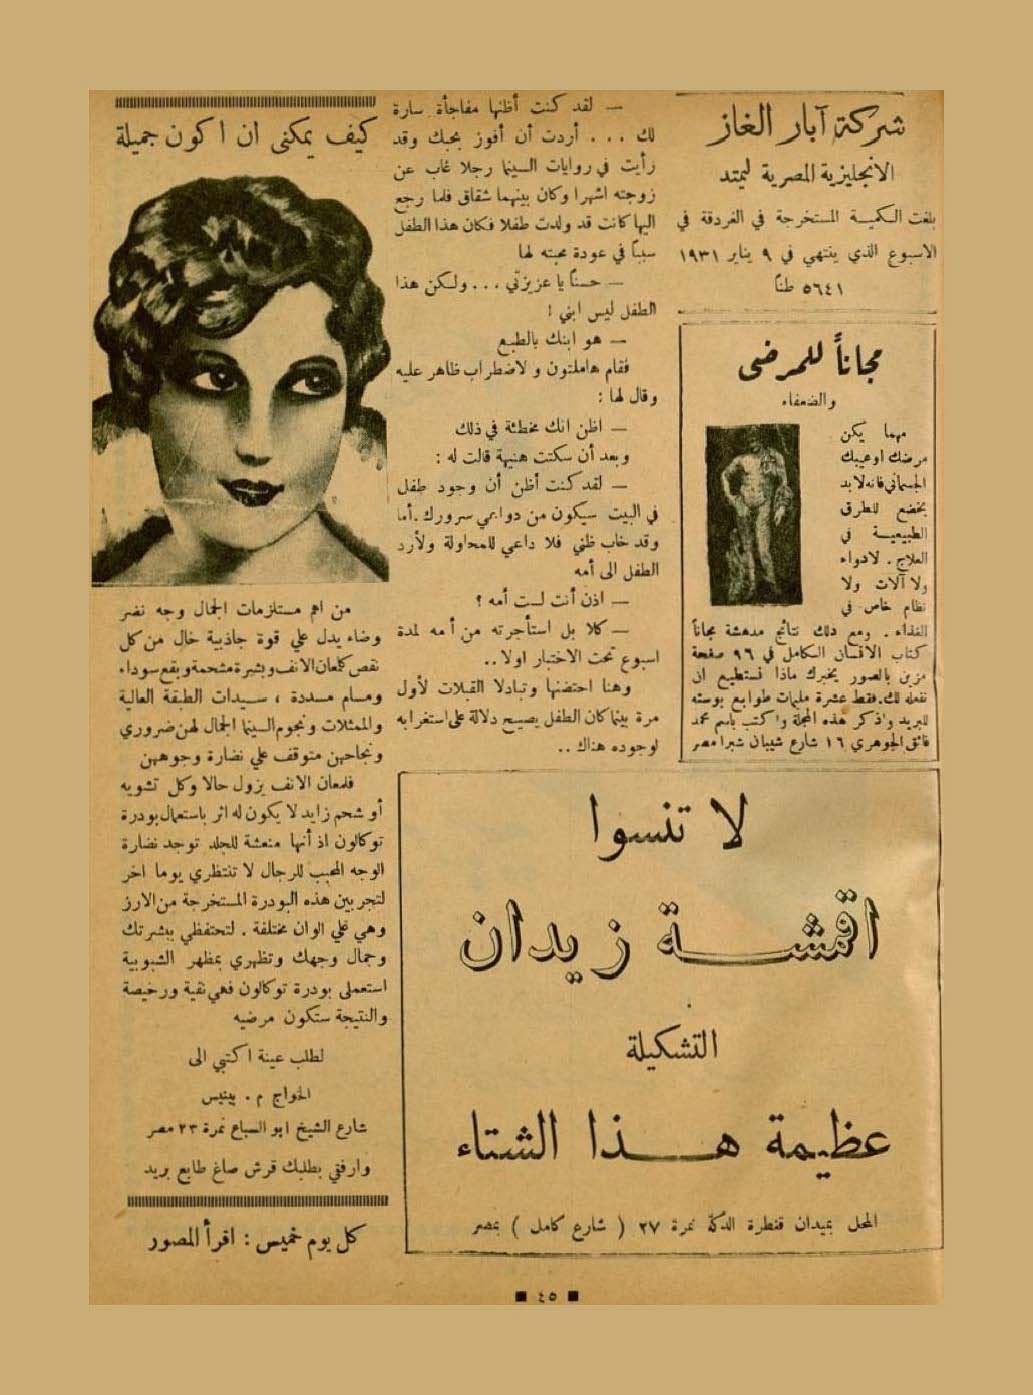 شركة آبار الغاز
الانجليزية المصرية ليمتد
بلغت الكمية المستخرجة في الغردقة في
الاسبوع الذي ينتهي في ٩ يناير ١٩٣١
٥٦٤١ طناً
مجاناً للمرضى
والضعفاء
مهما يكن
مرضك او عيبك
الجسماني فانه لابد
يخضع للطرق
الطبيعية في
العلاج . لادواء
ولا آلات ولا
نظام خاص في
الغذاء . ومع ذلك نتائج مدهشة مجاناً
كتاب الانسان الكامل في ٩٦ صفحة
مزين بالصور يخبرك ماذا نستطيع ان
نفعله لك. فقط عشرة مليمات طوابع بوسته
للبريد واذكر هذه المجلة واكتب باسم محمد
فائق الجوهري ١٦ شارع شيبان شبرا مصر
— لقد كنت أظنها مفاجأة سارة
لك ... أردت أن أفوز بحبك وقد
رأيت في روايات السينما رجلا غاب عن
زوجته اشهرا وكان بينهما شقاق فلما رجع
اليها كانت قد ولدت طفلا فكان هذا الطفل
سبباً في عودة محبته لها
— حسناً يا عزيزتي ... ولكن هذا
الطفل ليس ابني !
— هو ابنك بالطبع
فقام هاملتون و لاضطراب ظاهر عليه
وقال لها :
— اظن انك مخطئة في ذلك
وبعد أن سكتت هنيهة قالت له :
— لقد كنت أظن أن وجود طفل
في البيت سيكون من دواعي سرورك . أما
وقد خاب ظني فلا داعي للمحاولة ولأرد
الطفل الى أمه
— اذن أنت لست أمه ؟
— كلا بل استأجرته من أمه لمدة
اسبوع تحت الاختبار اولا ..
وهنا احتضنها وتبادلا القبلات لأول
مرة بينما كان الطفل يصيح دلالة على استغرابه
لوجوده هناك ..
كيف يمكنى ان اكون جميلة
من اهم مستلزمات الجمال وجه نضر
وضاء يدل علي قوة جاذبية خال من كل
نقص كلمعان الانف وبشيرة مشحمة وبقع سوداء
ومسام مسددة ، سيدات الطبقة العالية
والممثلات ونجوم السينما الجمال لهن ضروري
ونجاحهن متوقف علي نضارة وجوههن
فلمعان الانف يزول حالا وكل تشويه
أو شحم زايد لا يكون له اثر باستعمال بودرة
توكالون اذ أنها منعشة للجلد توجد نضارة
الوجه المحبب للرجال لا تنتظري يوما اخر
لتجربين هذه البودرة المستخرجة من الارز
وهي علي الوان مختلفة . لتحتفظي ببشرتك
وجمال وجهك وتظهري بمظهر الشبوبية
استعملى بودرة توكالون فهي نقية ورخيصة
والنتيجة ستكون مرضيه
لطلب عينة اكتبي الى
الخواج م . بينيس
شارع الشيخ ابو السباع نمرة ٢٣ مصر
وارفقي بطلبك قرش صاغ طابع بريد
كل يوم خميس : اقرأ المصور
لا تنسوا
اقمشة زيدان
التشكيلة
عظيمة هذا الشتاء
المحل بميدان قنطرة الدكة نمرة ٢٧ ( شارع كامل ) بمصر
٤٥